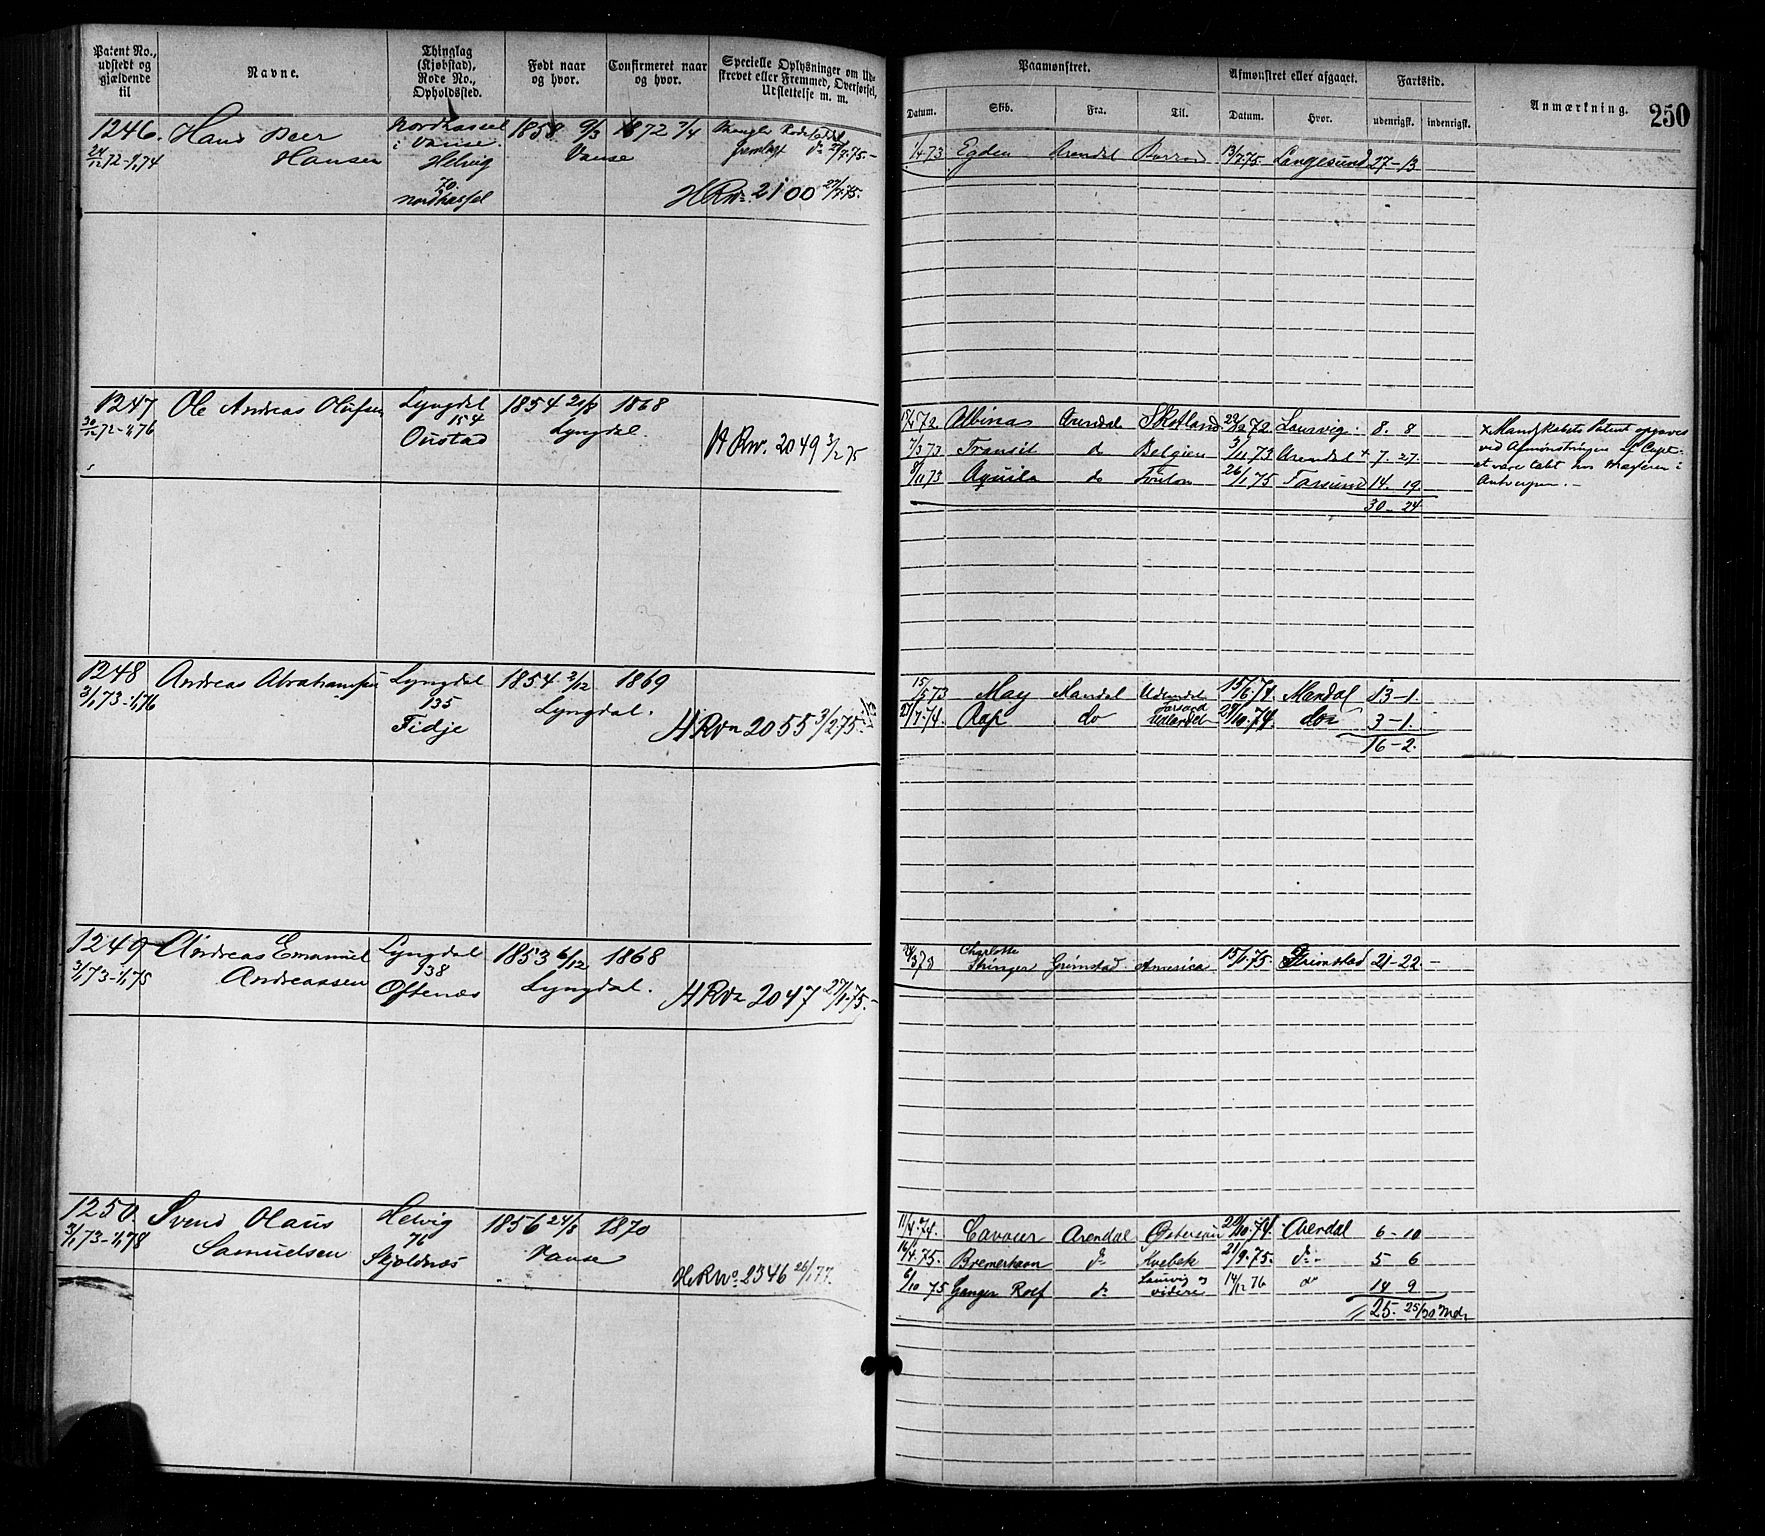 Patent No., udstedt og gjældende til
Navne.
Thinglag (Kjøbstad), Rode No., Opholdssted.
Født naar og hvor.
Confirmeret naar og hvor.
Specielle Oplysninger om Udskrevet eller Fremmed, Overførsel, Udslettelse m. m.
Paamønstret.
Datum. Skib. Fra. Til.
Afmønstret eller afgaaet.
Datum. Hvor.
Fartstid.
udenrigsk. indenrigsk.
Anmærkning.
250
1246. Hans Peer Hansen
24/12 72 - 1/1 74
Nordhassel i Vanse
Helvig
70.
Nordhassel
1858 9/3 Vanse
1872 7/4
HRNo 2100 27/7 75.
1/4 73 Egden Arendal 13/7 75 Langesund 27-13
1247 Ole Andreas Olufsen
30/12 72 - 1/1 76
Lyngdal
154
Oustad
1854 21/8 Lyngdal.
1868
HRNo. 2049 3/2 75
72. Albinas Arendal Skotland 72 Laurvig. 8. 8
7/3 73 Transit do Belgien 3/11 73 Arendal + 7. 27.
8/11 73 Aquila do 26/1 75 Farsund 14. 19.
30 - 24
x Mandskabets Patent opgaves
ved Afmønstringen af Capt.
at være tabt hos Mægleren i
Antwerpen. -
1248 Andreas Abrahamsen
3/1 73 - 1/1 76
Lyngdal
135
Fidje
1854 2/12 Lyngdal.
1869
HRNo 2055 3/2 75.
15/5 73 May Mandal Udlandet 15/6 74 Mandal 13-1.
27/7 74. Rap do Farsund Udlandet 28/10. 74 do 3-1.
16-2.
1249 Andreas Emanuel Andreassen
3/1 73 - 1/1 75
Lyngdal
138
Oftenæs
1853 6/12 Lyngdal.
1868
HRNo 2047 27/1 75. -
73 Charlotte Stringer Grimstad. America 15/1 75 Grimstad 21-22 -
1250. Svend Olaus Samuelsen
3/1 73 - 1/1 78
Helvig
76
Skjoldnæs
1856 24/8 Vanse
1870
HRNo. 2346 26/1 77.
11/4 74. Cavour Arendal Østersøen 20/10. 74. Arendal 6-10
16/4 75. Bremerhavn do Kvebek 21/9. 75. do - 5 6
6/10 75 Ganger Rolf do Laurvig og videre 14/12 76 do 14 9
25. 25/30 Md.